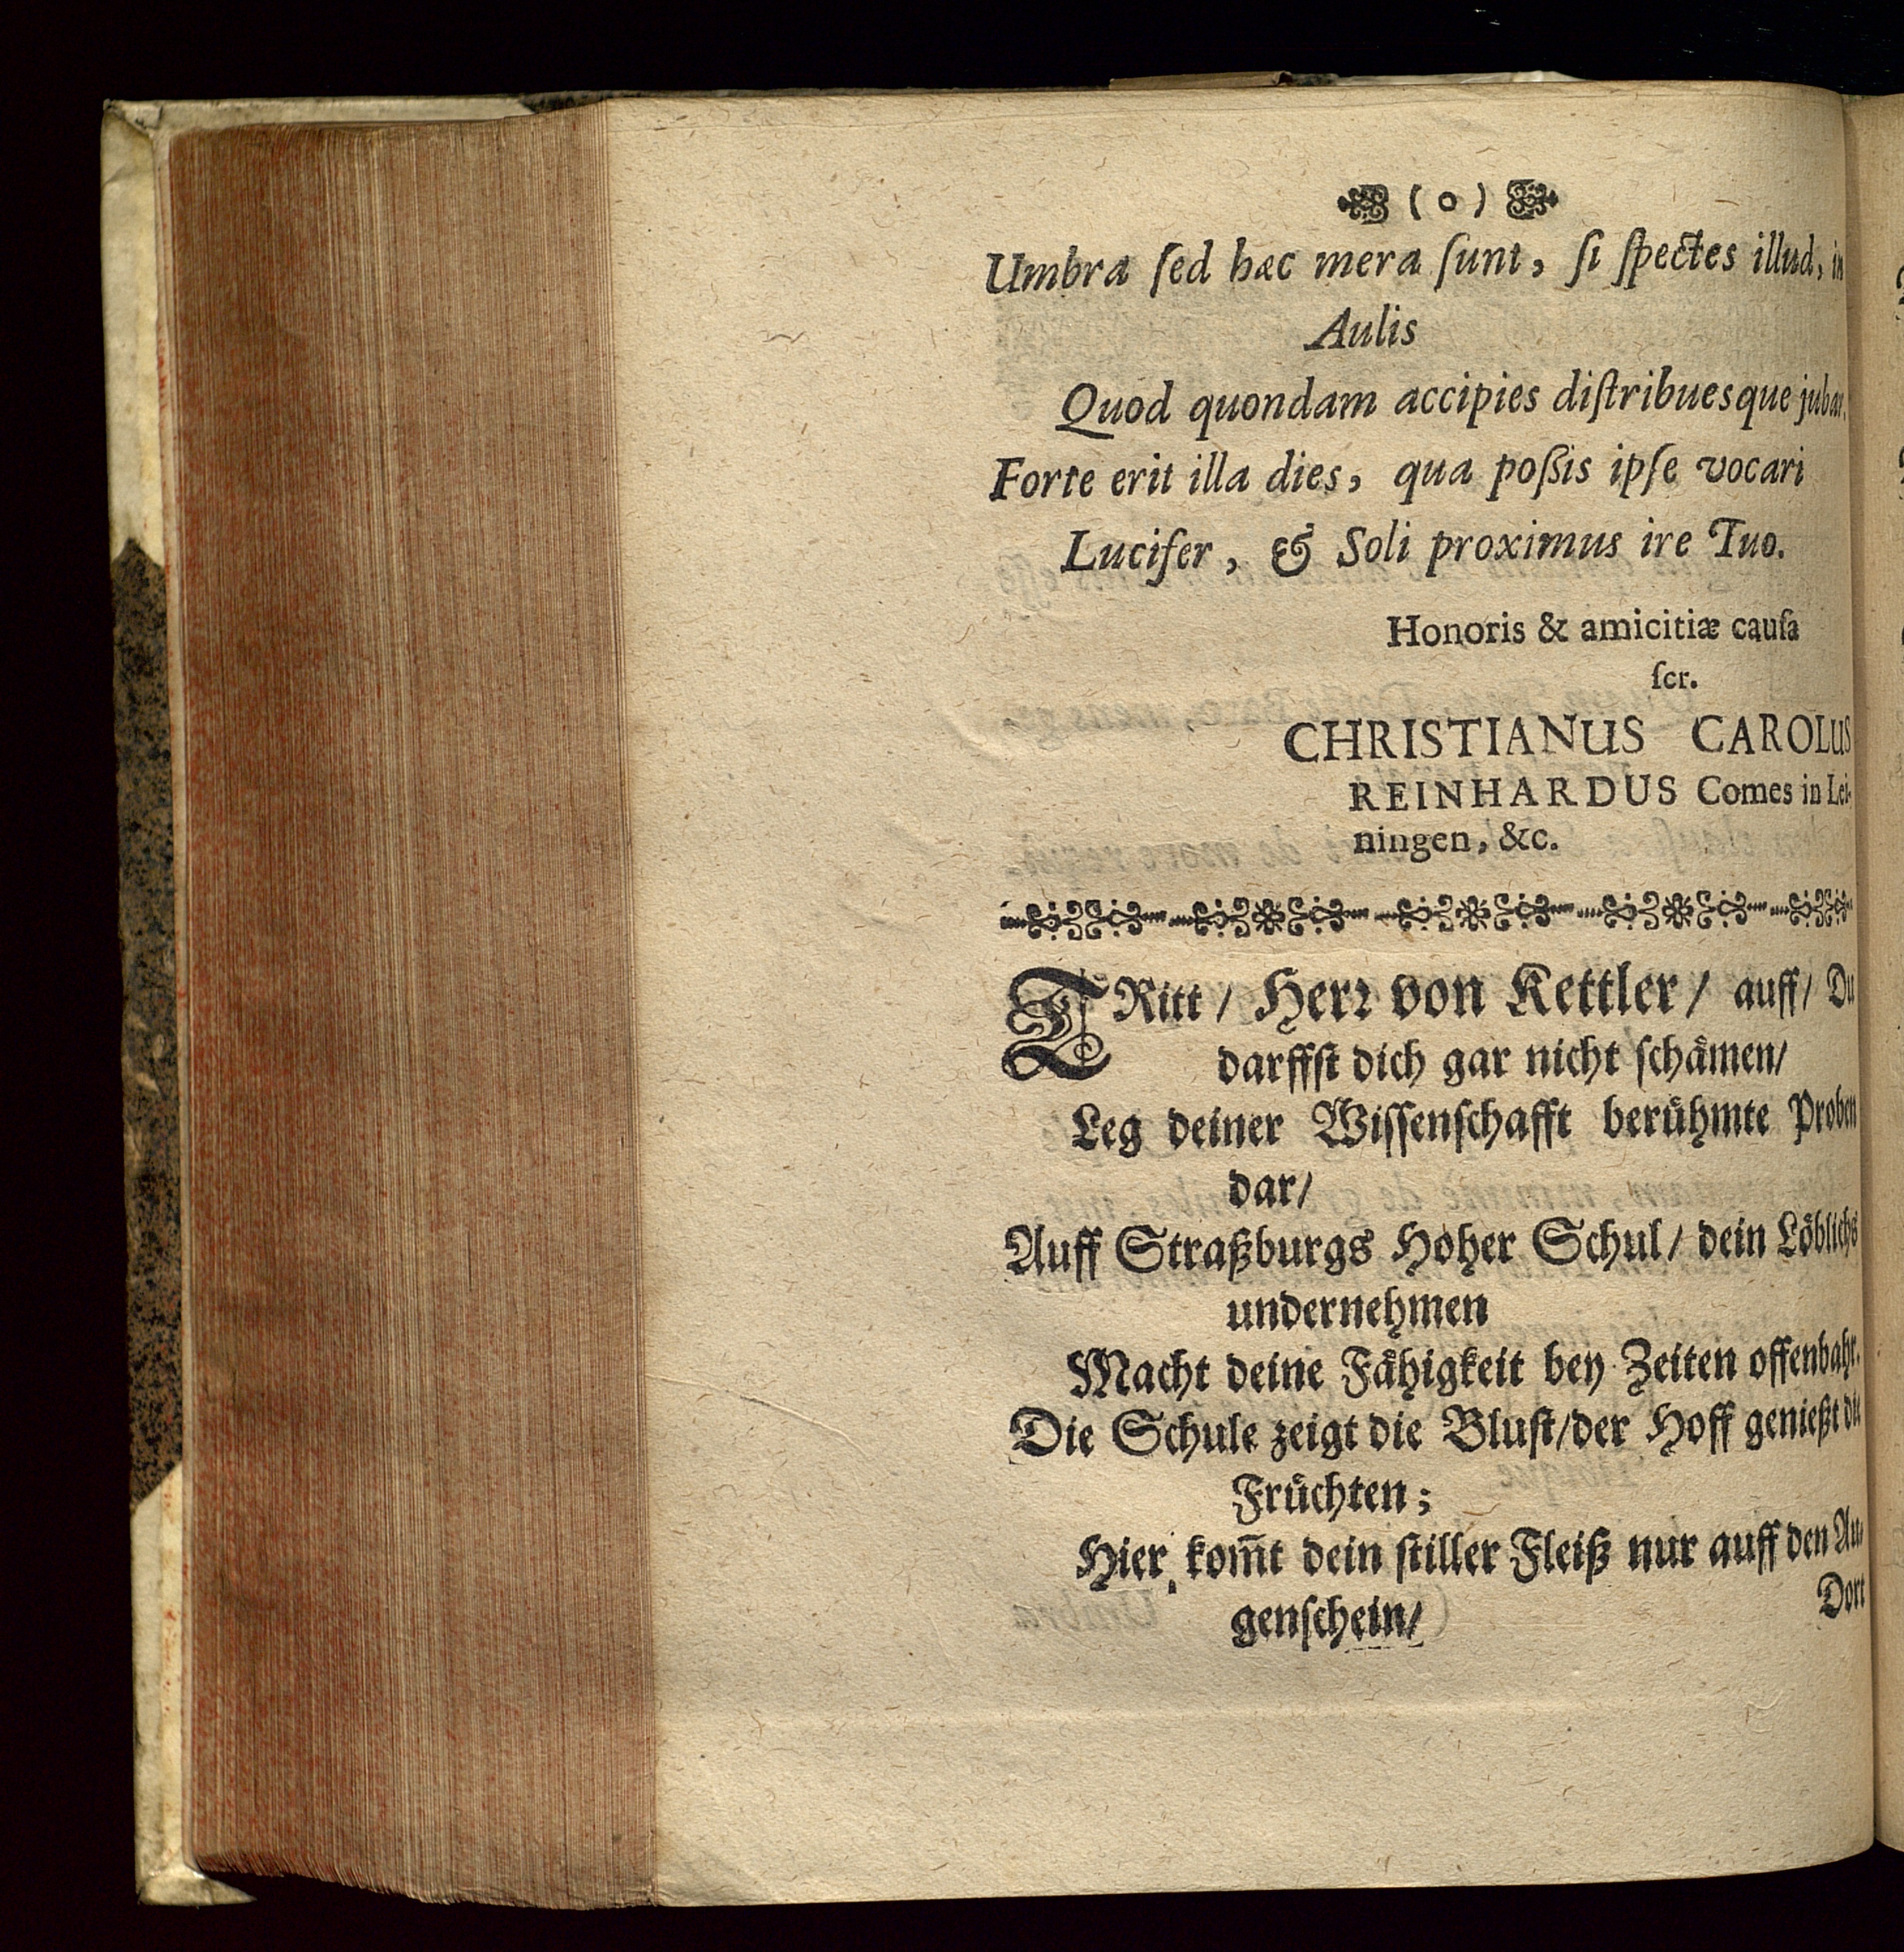 ( o )
Umbra ſed hæc mera ſunt, ſi ſpectes illud, in
Aulis
Quod quondam accipies diſtribuesque jubar.
Forte erit illa dies, qua poßis ipſe vocari
Lucifer, & Soli proximus ire Tuo.
Honoris & amicitiæ cauſa
ſcr.
CHRISTIANUS CAROLUS
REINHARDUS Comes in Lei-
ningen, &c.
TRitt / Herꝛ von Kettler / auff / Du
darffſt dich gar nicht ſchaͤmen/
Leg deiner Wiſſenſchafft beruͤhmte Proben
dar/
Auff Straßburgs Hoher Schul / dein Loͤblichs
undernehmen
Macht deine Faͤhigkeit bey Zeiten offenbahr.
Die Schule zeigt die Bluſt/der Hoff genießt die
Fruͤchten;
Hier kom̃t dein ſtiller Fleiß nur auff den Au-
genſchein/
Dort